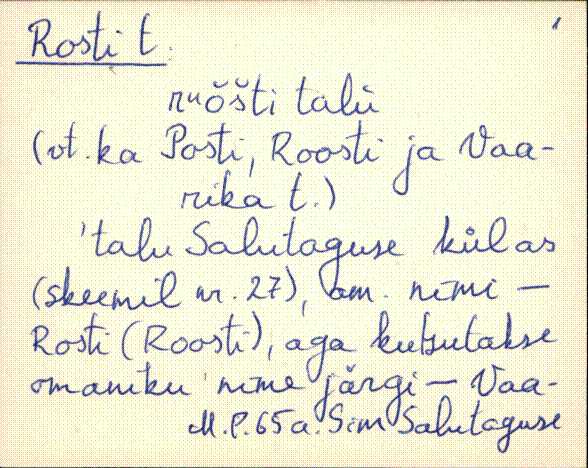 Rosti t.
ruŏšti talu
(vt. ka Posti, Roosti ja Vaa-
rika t.)
'talu Salutaguse külas
(skeemil nr. 27), am. nimi —
Rosti (Roosti), aga kutsutakse
omaniku nime järgi — Vaa-
M.P. 65 a. Sim Salutaguse